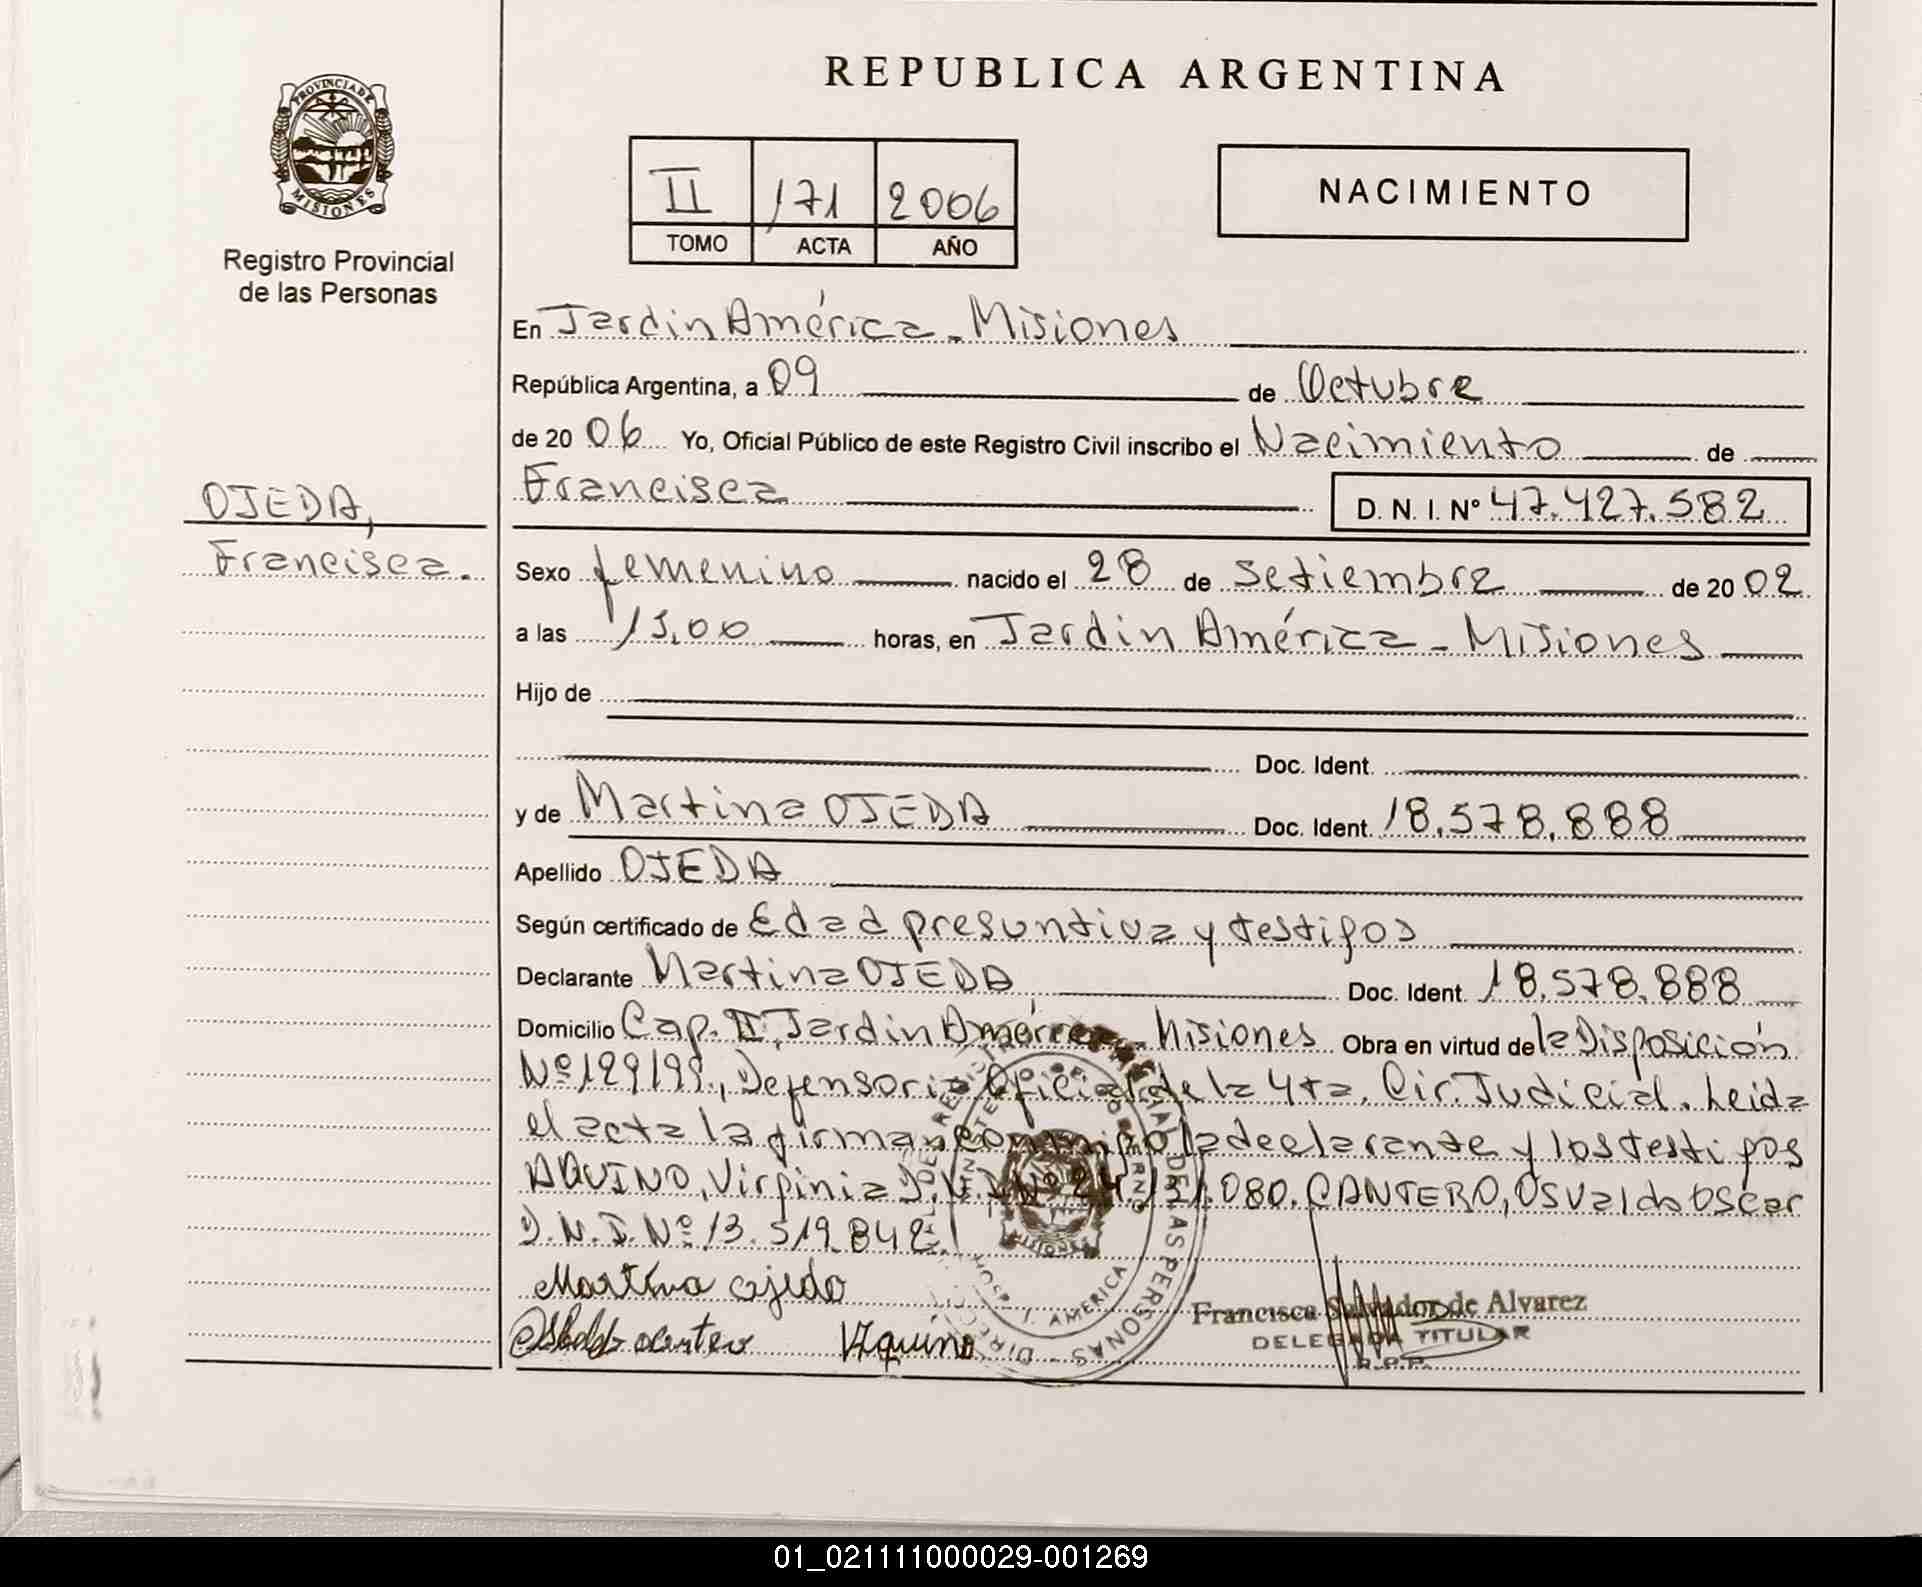 REPUBLICA ARGENTINA
PROVINCIA DE
MISIONES
Registro Provincial
de las Personas
II 171 2006
TOMO ACTA AÑO
NACIMIENTO
En Jardin América - Misiones
República Argentina, a 09 de Octubre
de 2006 Yo, Oficial Público de este Registro Civil inscribo el Nacimiento de
Francisca D. N. I. Nº 47.427.582
OJEDA,
Francisca.
Sexo femenino nacido el 28 de Setiembre de 2002
a las 13,00 horas, en Jardin América - Misiones
Hijo de
Doc. Ident.
y de Martina OJEDA Doc. Ident. 18.578.888
Apellido OJEDA
Según certificado de Edad presuntiva y testigos
Declarante Martina OJEDA Doc. Ident. 18.578.888
Domicilio Cap. II. Jardin América - Misiones Obra en virtud de la Disposición
Nº 199/99., Defensoria Oficial de la 4ta. Cir. Judicial. Leida
el acta la firman conmigo la declarante y los testigos
AQUINO, Virginia D.N.I. Nº 24. .080. CANTERO, Osvaldo Oscar
D.N.I. Nº 13.519.842.
Martina ojeda
V Aquino
Francisca Salvador de Alvarez
DELEGADA TITULAR
R.P.P.
01_021111000029-001269